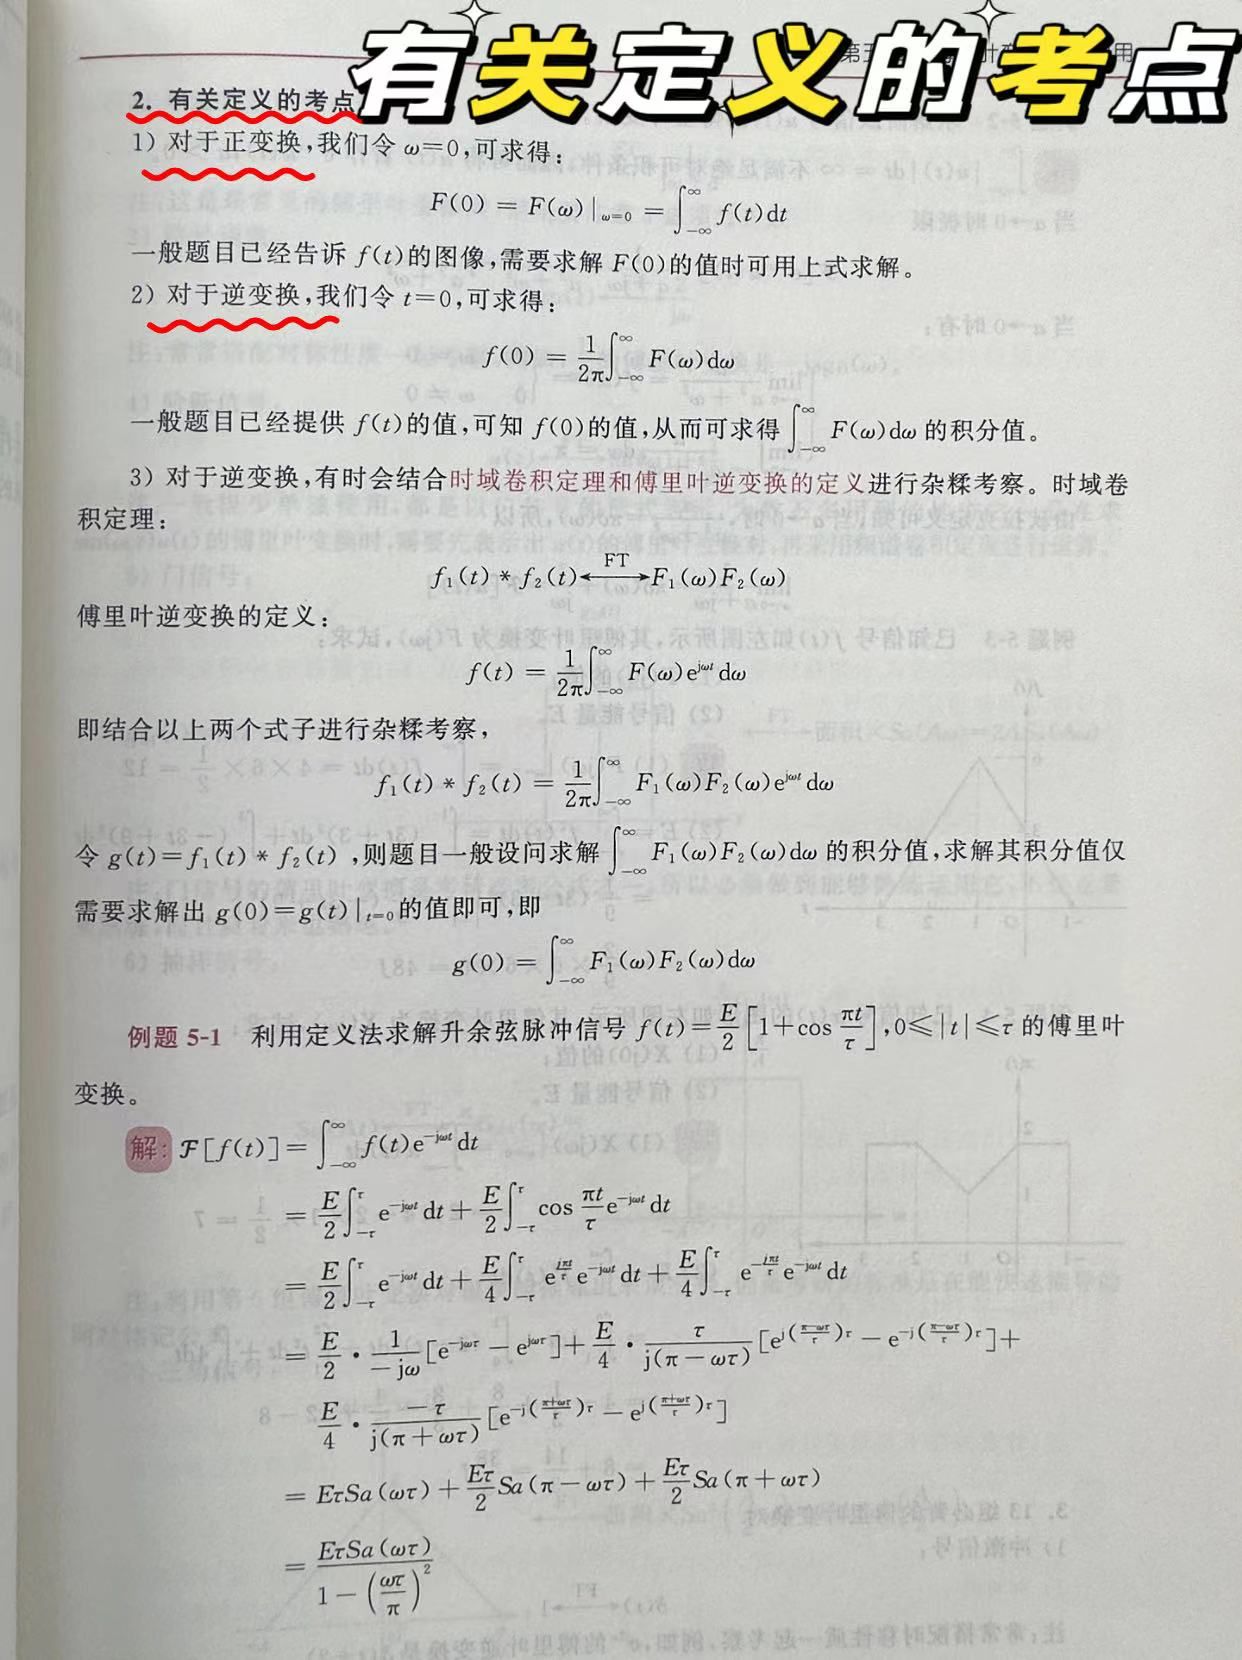 有关定义的考点
第五
用
2. 有关定义的考点
1) 对于正变换,我们令 ω=0,可求得:
F(0) = F(ω)|ω=0 = ∫_{-∞}^{∞} f(t)dt
一般题目已经告诉 f(t)的图像,需要求解 F(0)的值时可用上式求解。
2) 对于逆变换,我们令 t=0,可求得:
f(0) = \frac{1}{2π}∫_{-∞}^{∞} F(ω)dω
一般题目已经提供 f(t)的值,可知 f(0)的值,从而可求得∫_{-∞}^{∞} F(ω)dω 的积分值。
3) 对于逆变换,有时会结合时域卷积定理和傅里叶逆变换的定义进行杂糅考察。时域卷
积定理:
f₁(t) * f₂(t) ←FT→ F₁(ω)F₂(ω)
傅里叶逆变换的定义:
f(t) = \frac{1}{2π}∫_{-∞}^{∞} F(ω)e^{jωt} dω
即结合以上两个式子进行杂糅考察,
f₁(t) * f₂(t) = \frac{1}{2π}∫_{-∞}^{∞} F₁(ω)F₂(ω)e^{jωt} dω
令 g(t)=f₁(t) * f₂(t) ,则题目一般设问求解∫_{-∞}^{∞} F₁(ω)F₂(ω)dω 的积分值,求解其积分值仅
需要求解出 g(0)=g(t)|t=0的值即可,即
g(0) = ∫_{-∞}^{∞} F₁(ω)F₂(ω)dω
例题 5-1 利用定义法求解升余弦脉冲信号 f(t)=\frac{E}{2}[1+cos \frac{πt}{τ}],0≤|t|≤τ 的傅里叶
变换。
解: ℱ[f(t)]=∫_{-∞}^{∞} f(t)e^{-jωt} dt
= \frac{E}{2}∫_{-τ}^{τ} e^{-jωt} dt + \frac{E}{2}∫_{-τ}^{τ} cos \frac{πt}{τ}e^{-jωt} dt
= \frac{E}{2}∫_{-τ}^{τ} e^{-jωt} dt + \frac{E}{4}∫_{-τ}^{τ} e^{\frac{jπt}{τ}} e^{-jωt} dt + \frac{E}{4}∫_{-τ}^{τ} e^{-\frac{jπt}{τ}} e^{-jωt} dt
= \frac{E}{2} · \frac{1}{-jω}[e^{-jωτ} - e^{jωτ}] + \frac{E}{4} · \frac{τ}{j(π-ωτ)}[e^{j(\frac{π-ωτ}{τ})τ} - e^{-j(\frac{π-ωτ}{τ})τ}] +
\frac{E}{4} · \frac{-τ}{j(π+ωτ)}[e^{-j(\frac{π+ωτ}{τ})τ} - e^{j(\frac{π+ωτ}{τ})τ}]
= EτSa(ωτ) + \frac{Eτ}{2}Sa(π-ωτ) + \frac{Eτ}{2}Sa(π+ωτ)
= \frac{EτSa(ωτ)}{1-(\frac{ωτ}{π})^2}